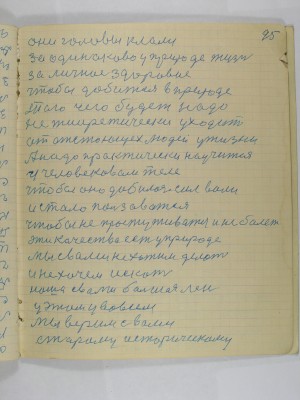 95
они головы клали
за одинаково у природе жизн
за личное здоровие
чтобы добится в природе
Тало чего будет надо
не теоретически уходит
от отстоющих людей у жизни
А надо практически научится
у человековам теле
чтобы оно добилось сил вами
и стало ползоватся
чтобы не простуживатся и не болет
эти качества ест у природе
мы с вами не хотим делат
и не хочем искат
наша с вами болшая лен
у этому во всем
мы верим с вами
старому историческому